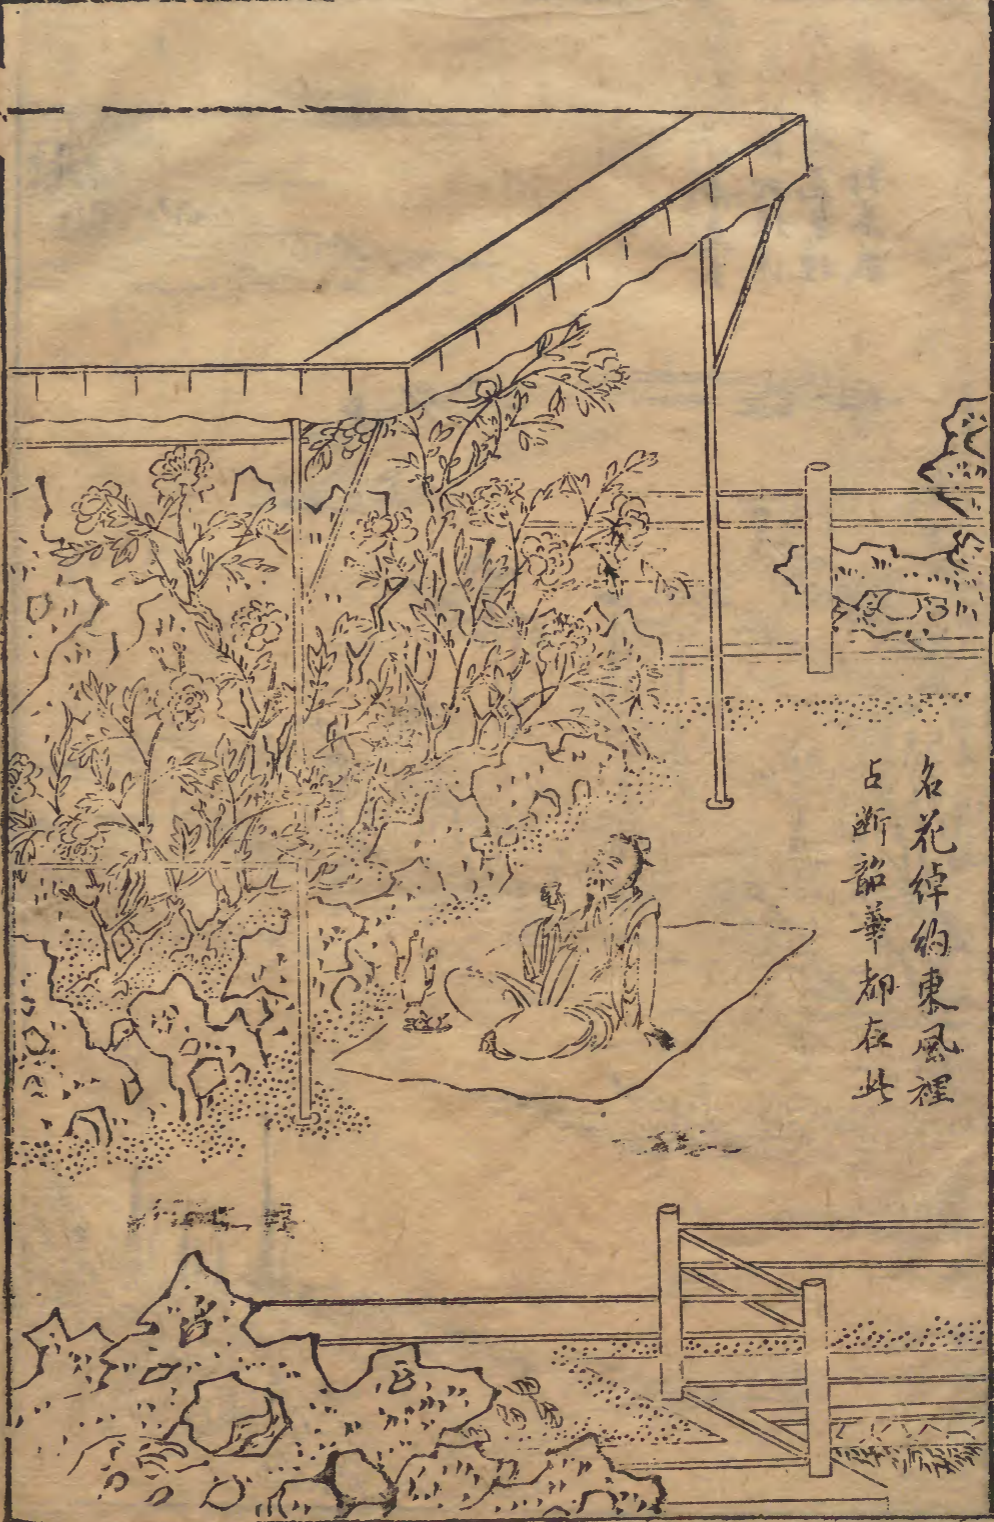 名花綽約東風裡
占斷韶華都在此